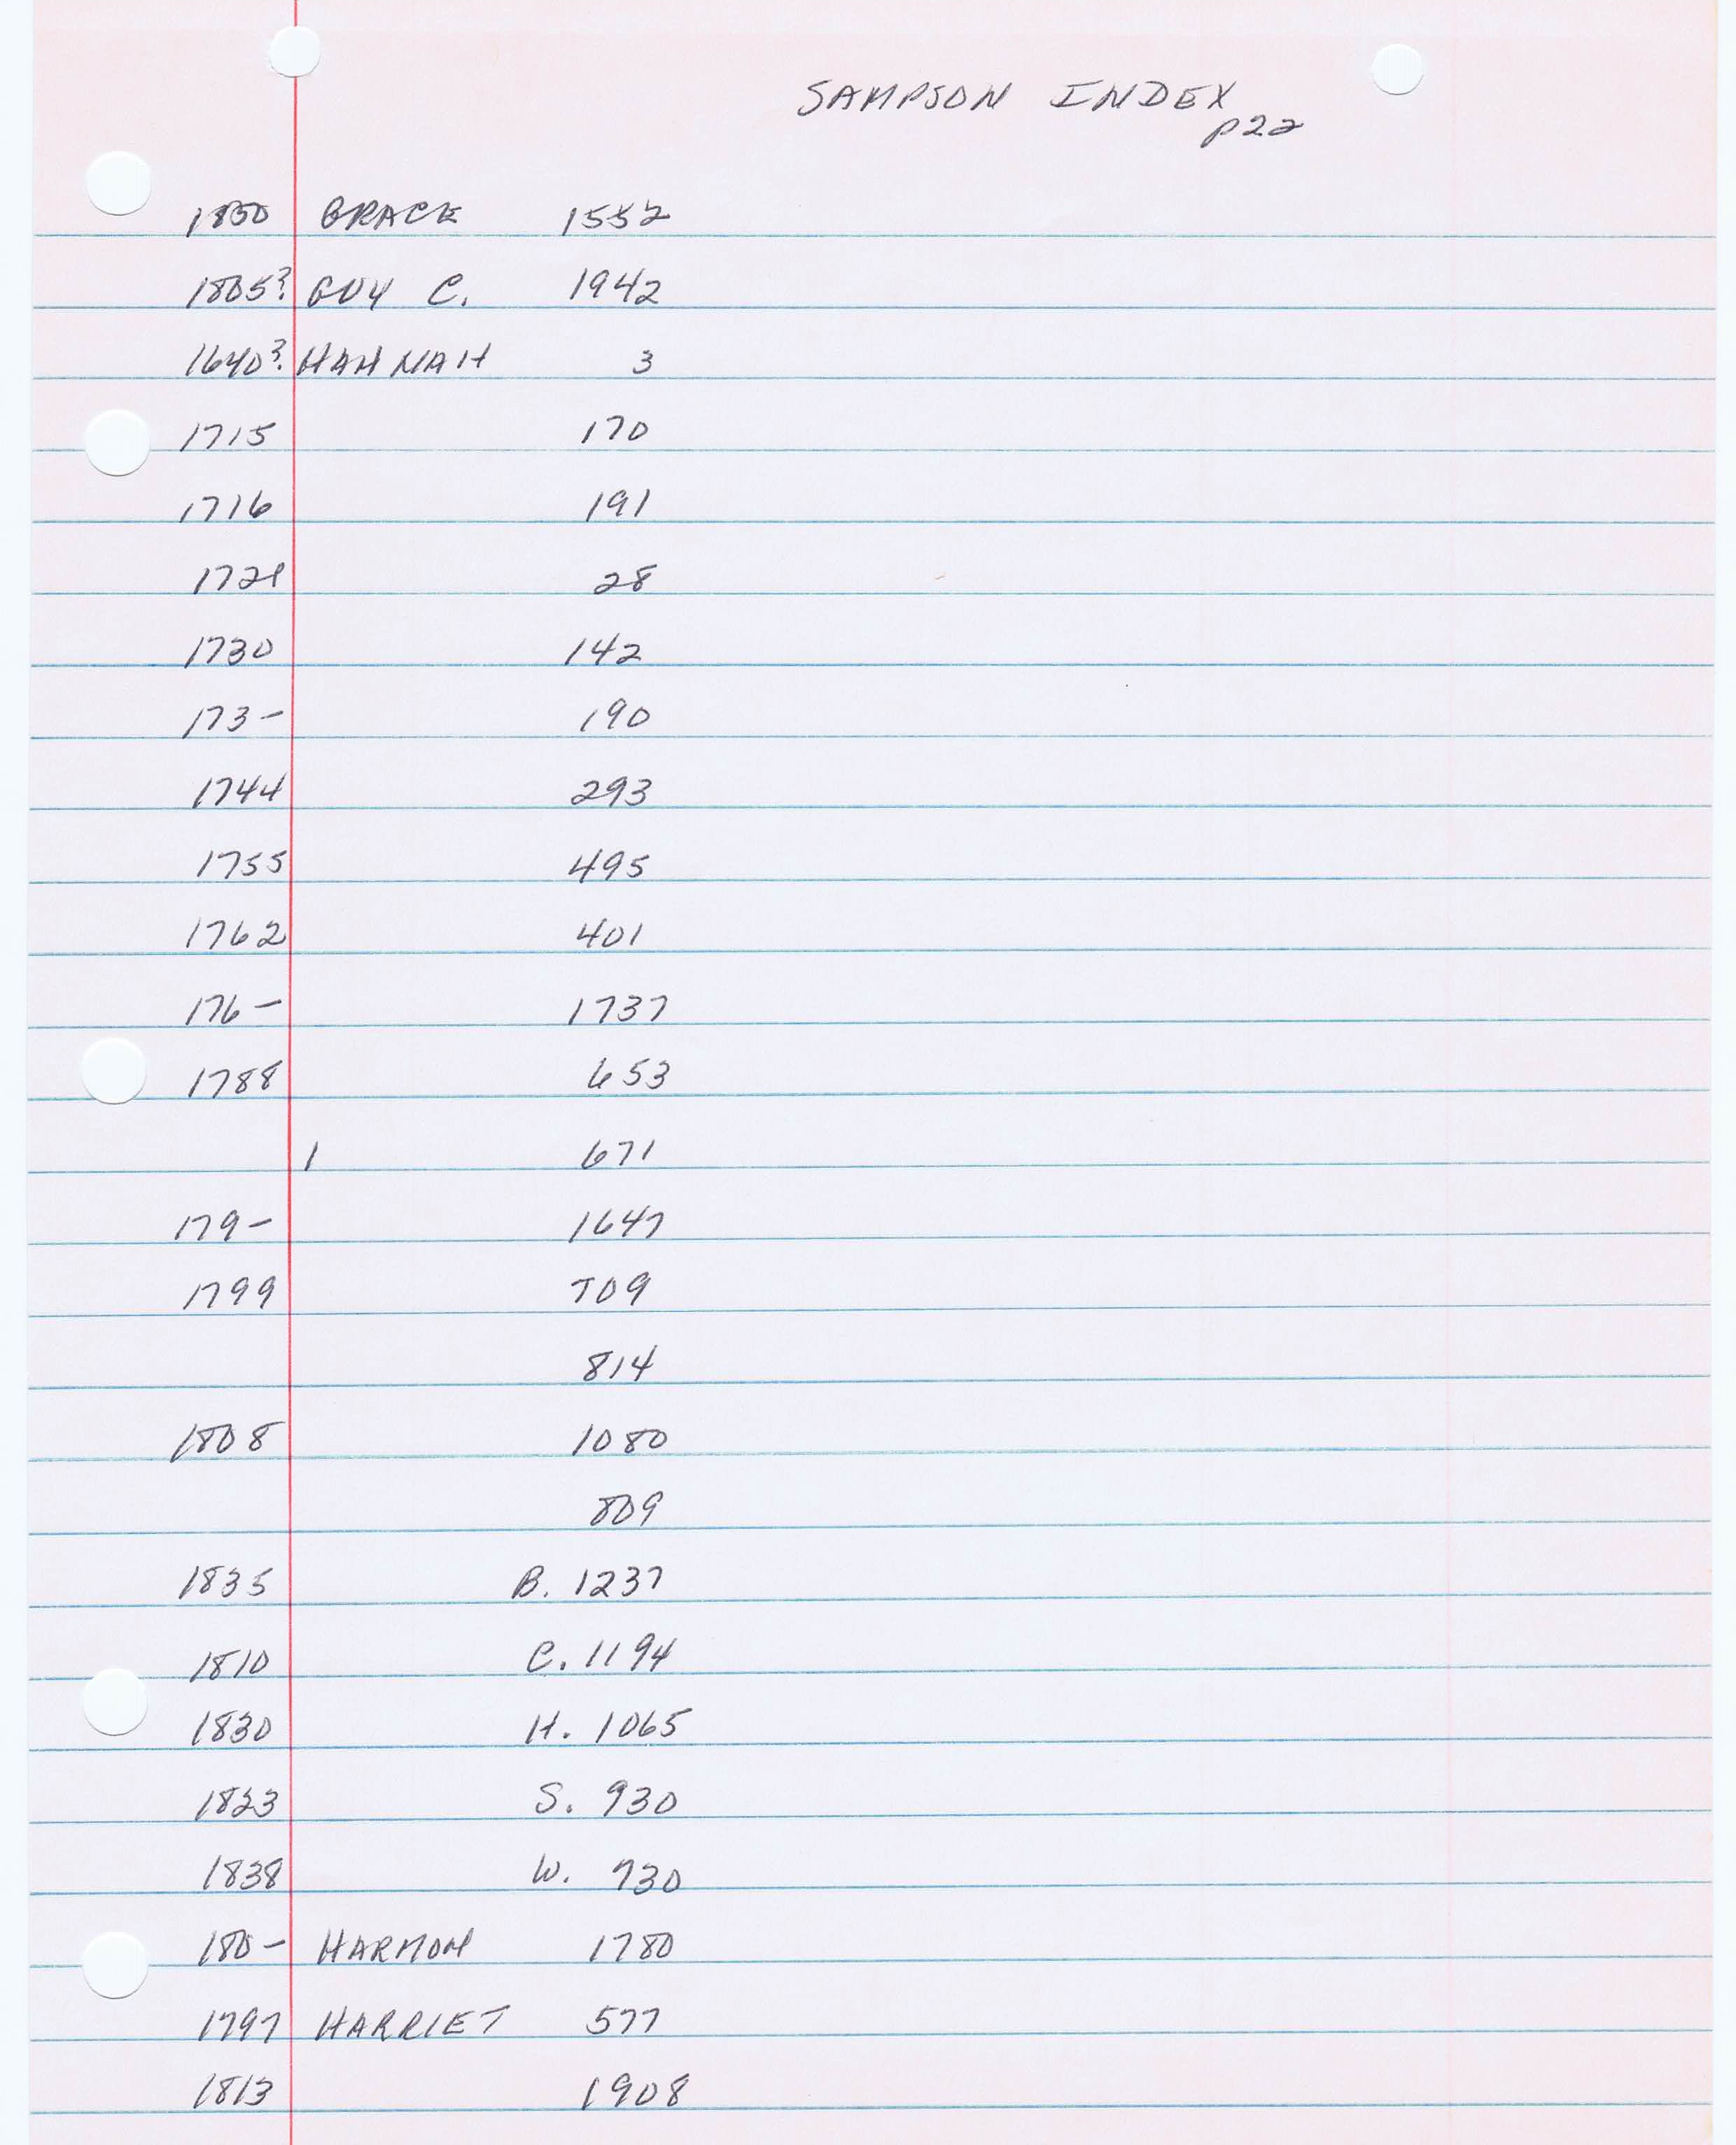 SAMPSON INDEX
p22
1850 GRACE 1552
1805? GUY C. 1942
1640? HANNAH 3
1715 170
1716 191
1721 28
1730 142
173- 190
1744 293
1755 495
1762 401
176- 1737
1788 653
1 671
179- 1647
1799 709
814
1808 1080
809
1835 B. 1237
1810 C. 1194
1830 H. 1065
1823 S. 930
1838 W. 730
180- HARMON 1780
1797 HARRIET 577
1813 1908